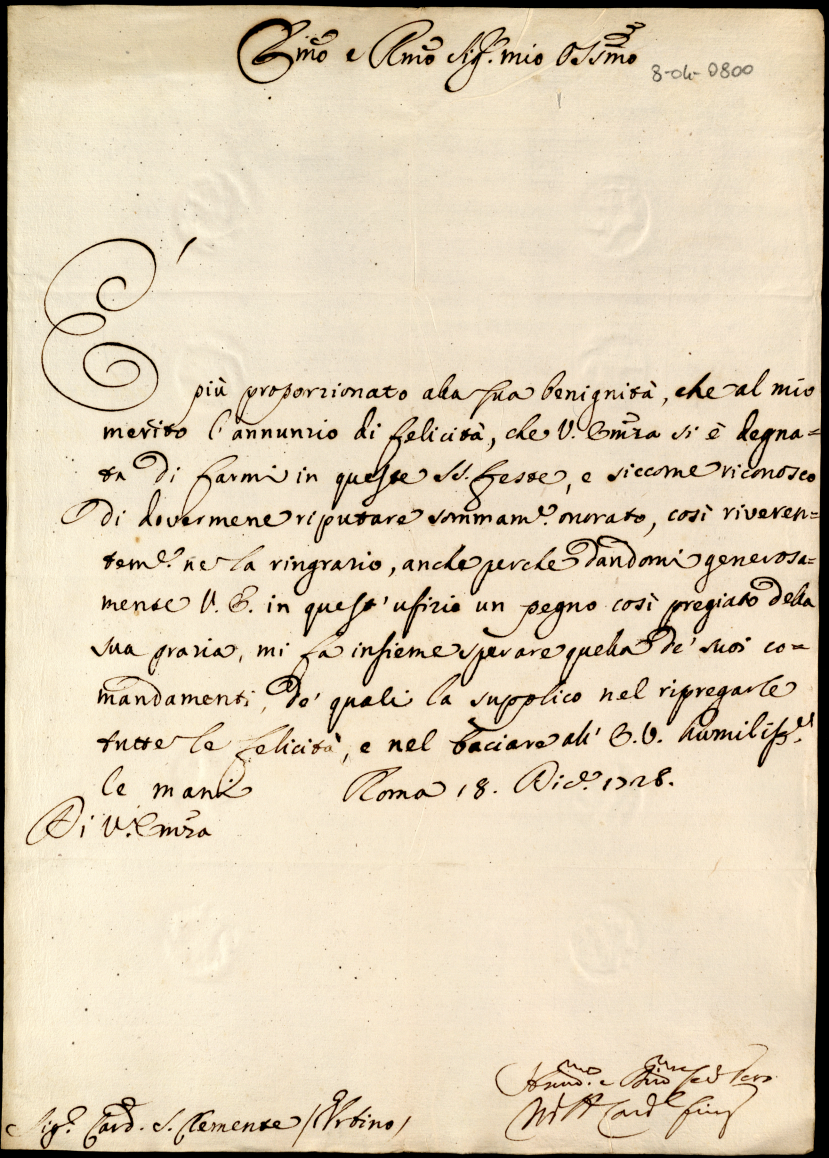 Em̃o e Rm̃o Sig.r mio Oss.mo
8-04-0800
È più proporzionato alla sua benignità, che al mio
merito l'annunzio di felicità, che V. Em̃za si è degna=
ta di farmi in queste SS. Feste, e siccome riconosco
di dovermene riputare sommam.e onorato, così riveren=
tem.e ne la ringrazio, anche perche dandomi generosa=
mente V. E. in quest' ufizio un pegno così pregiato della
sua grazia, mi fa insieme sperare quella de' suoi co=
mandamenti, de' quali la supplico nel ripregarle
tutte le felicità, e nel baciare all' E. V. humiliss.e
le mani Roma 18. Dic.e 1728.
Di V. Em̃za
Sig.r Card. S. Clemente /Urbino/
Card.l